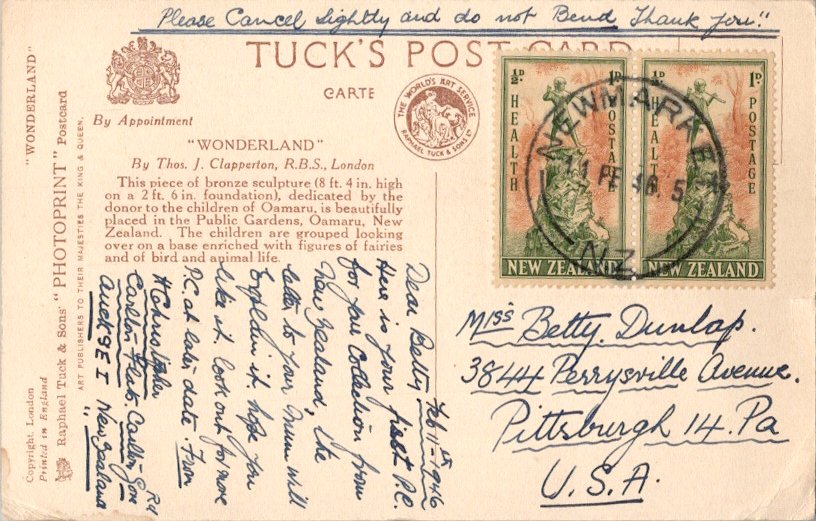 Please Cancel Lightly and do not Bend Thank you!!
TUCK'S POST CARD
CARTE
THE WORLD'S ART SERVICE
RAPHAEL TUCK & SONS LTD
By Appointment
"WONDERLAND"
By Thos. J. Clapperton, R.B.S., London
This piece of bronze sculpture (8 ft. 4 in. high
on a 2 ft. 6 in. foundation), dedicated by the
donor to the children of Oamaru, is beautifully
placed in the Public Gardens, Oamaru, New
Zealand. The children are grouped looking
over on a base enriched with figures of fairies
and of bird and animal life.
"WONDERLAND"
"PHOTOPRINT" Postcard
Raphael Tuck & Sons'
ART PUBLISHERS TO THEIR MAJESTIES THE KING & QUEEN.
Copyright. London
Printed in England
½D. 1D.
HEALTH
POSTAGE
NEW ZEALAND
½D. 1D.
HEALTH
POSTAGE
NEW ZEALAND
NEWMARKET
11 FE 46
N.Z.
Feb 11th 1946
Dear Betty
Here is your first P.C.
for your Collection from
New Zealand, the
letter to your Mum will
Explain it. hope you
like it. look out for more
P.C. at later date. From
H Christopher
Carlton Flats, Carlton Gore Rd
Auck SE I New Zealand
Miss Betty. Dunlap.
3844 Perrysville Avenue.
Pittsburgh 14. Pa
U.S.A.